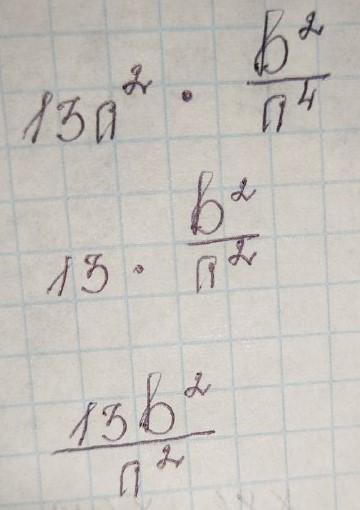 13n² · b²/n⁴
13 · b²/n²
13b²/n²